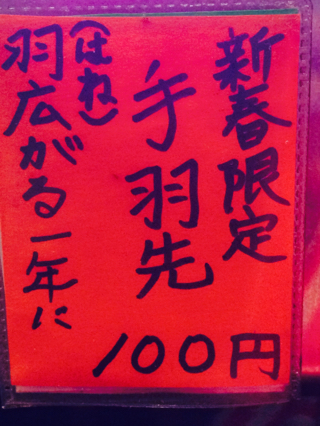 新春限定
手羽先
100円
(はね)
羽広がる一年に